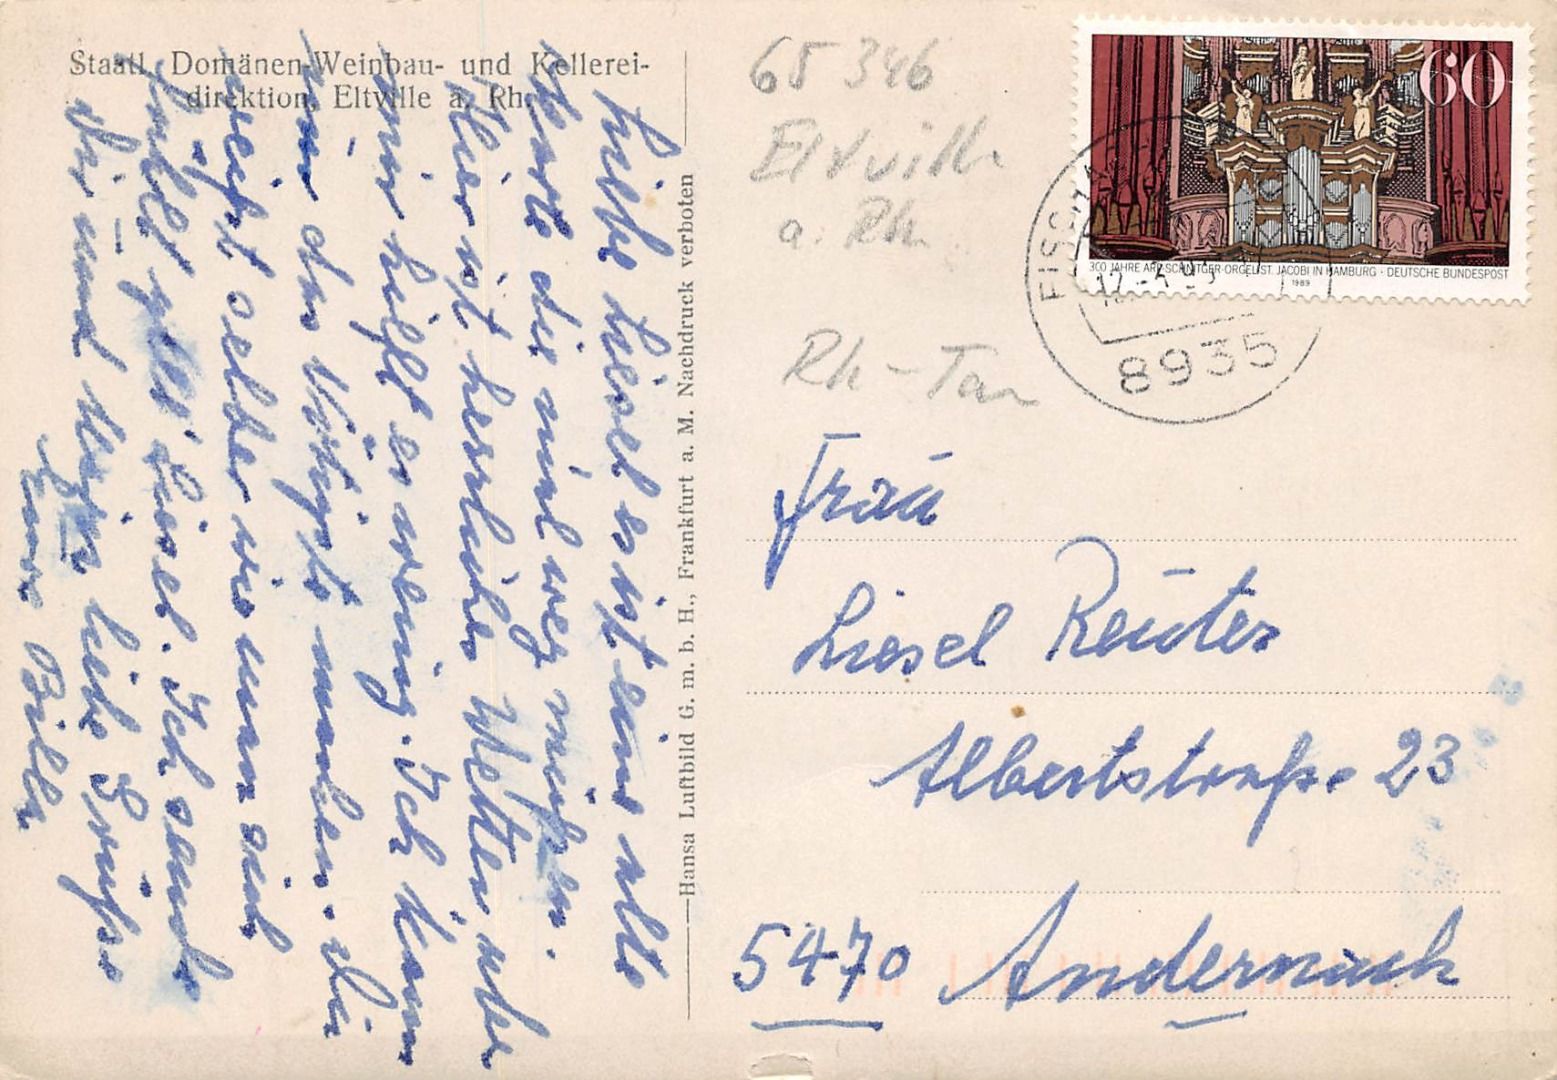 Staatl. Domänen-Weinbau- und Kellerei-
direktion, Eltville a. Rh.
Liebe Liesel es ist eine alte
Karte die muß weg
Hier ist herrliches Wetter, aber
mir hilft es wenig. Ich kann
nur das Nötigste machen. Du
weißt selber wie man sich
fühlt gell Liesel. Ich sende
Dir und liebe Grüße
Eure
Hansa Luftbild G. m. b. H., Frankfurt a. M. Nachdruck verboten
65 346
Eltville
a. Rh
Rh - Tau
60
300 JAHRE ARP-SCHNITGER-ORGEL ST. JACOBI IN HAMBURG · DEUTSCHE BUNDESPOST
1989
8935
Frau
Liesel Reuter
Albertstraße 23
5470 Andernach